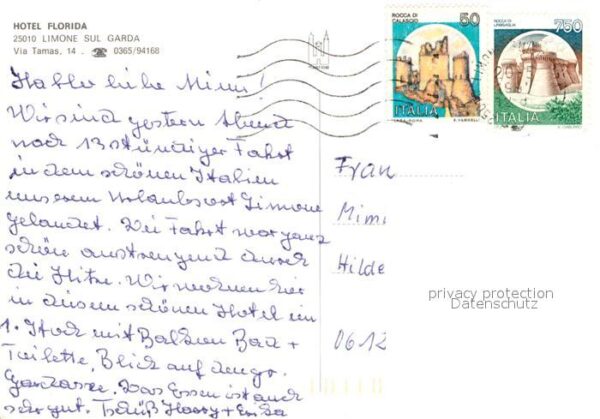 HOTEL FLORIDA
25010 LIMONE SUL GARDA
Via Tamas, 14 . ☎ 0365/94168
ROCCA DI CALASCIO
50
ITALIA
ROCCA DI URBISAGLIA
750
ITALIA
Hallo liebe Mimi!
Wir sind gestern Abend
nach 13 stündiger Fahrt
in dem schönen Italien
unserem Urlaubsort Limone
gelandet. Die Fahrt war ganz
schön anstrengend durch
die Hitze. Wir wohnen hier
in diesem schönen Hotel im
1. Stock mit Balkon Bad +
Toilette, Blick auf den gr.
Gardasee. Das Essen ist auch
sehr gut. Tschüß Harry +
Frau
Mimi
Hilde
0612
privacy protection
Datenschutz